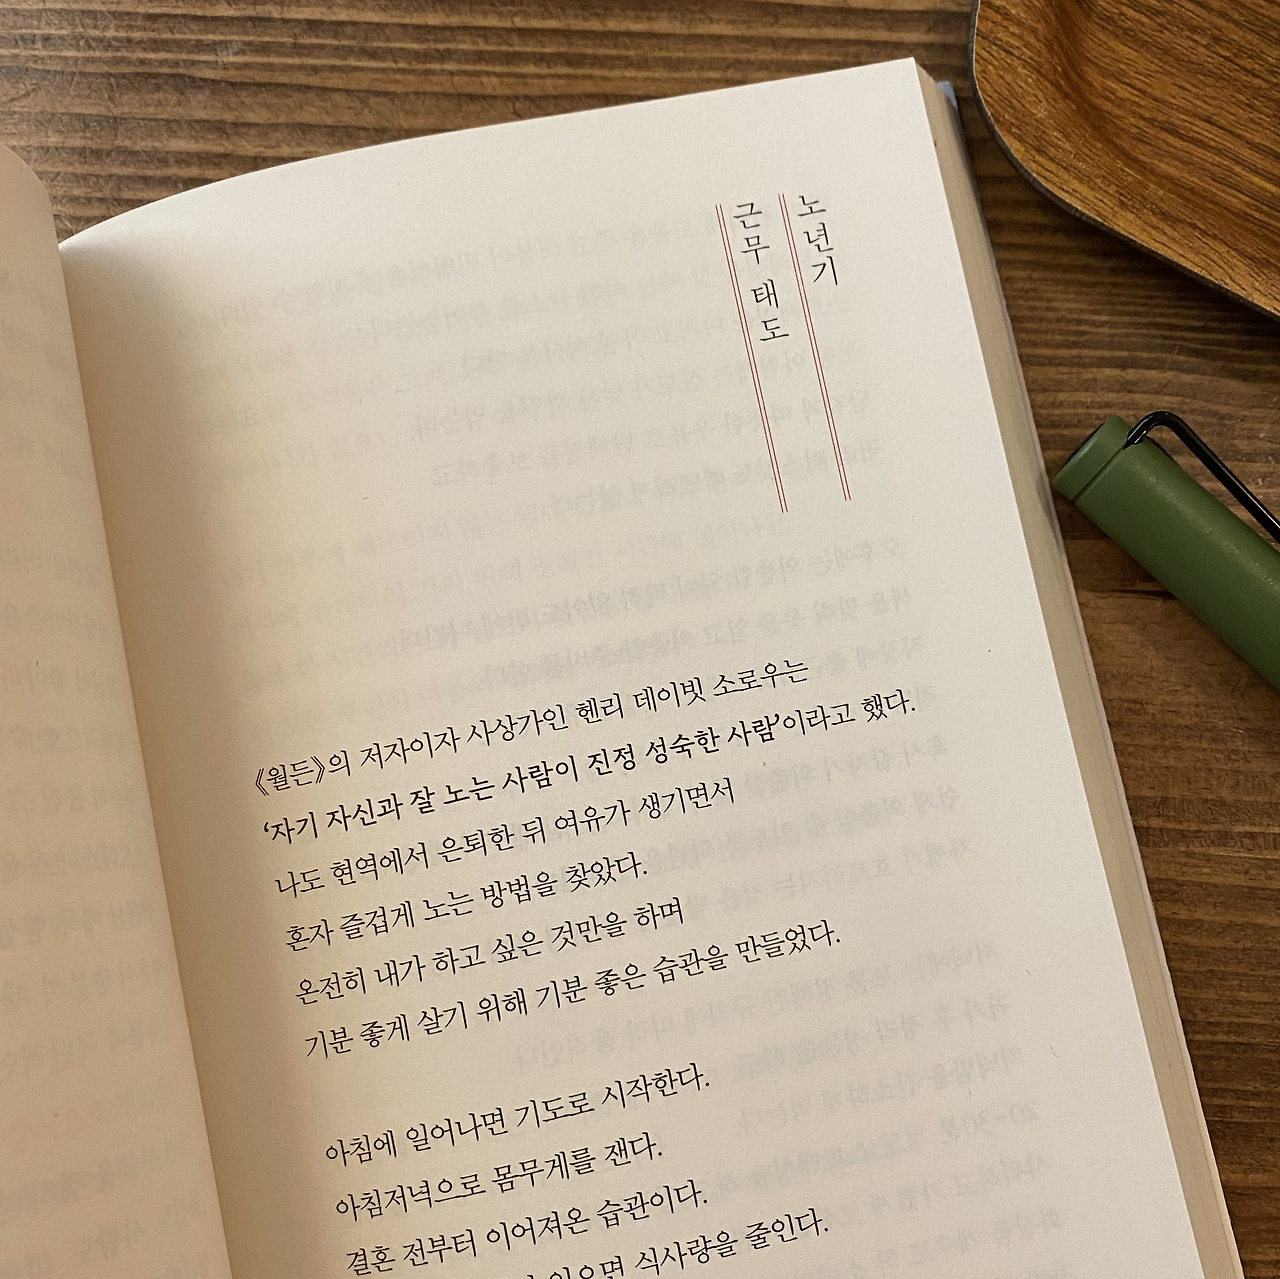 노년기
근무 태도
《월든》의 저자이자 사상가인 헨리 데이빗 소로우는
‘자기 자신과 잘 노는 사람이 진정 성숙한 사람’이라고 했다.
나도 현역에서 은퇴한 뒤 여유가 생기면서
혼자 즐겁게 노는 방법을 찾았다.
온전히 내가 하고 싶은 것만을 하며
기분 좋게 살기 위해 기분 좋은 습관을 만들었다.
아침에 일어나면 기도로 시작한다.
아침저녁으로 몸무게를 잰다.
결혼 전부터 이어져온 습관이다.
있으면 식사량을 줄인다.